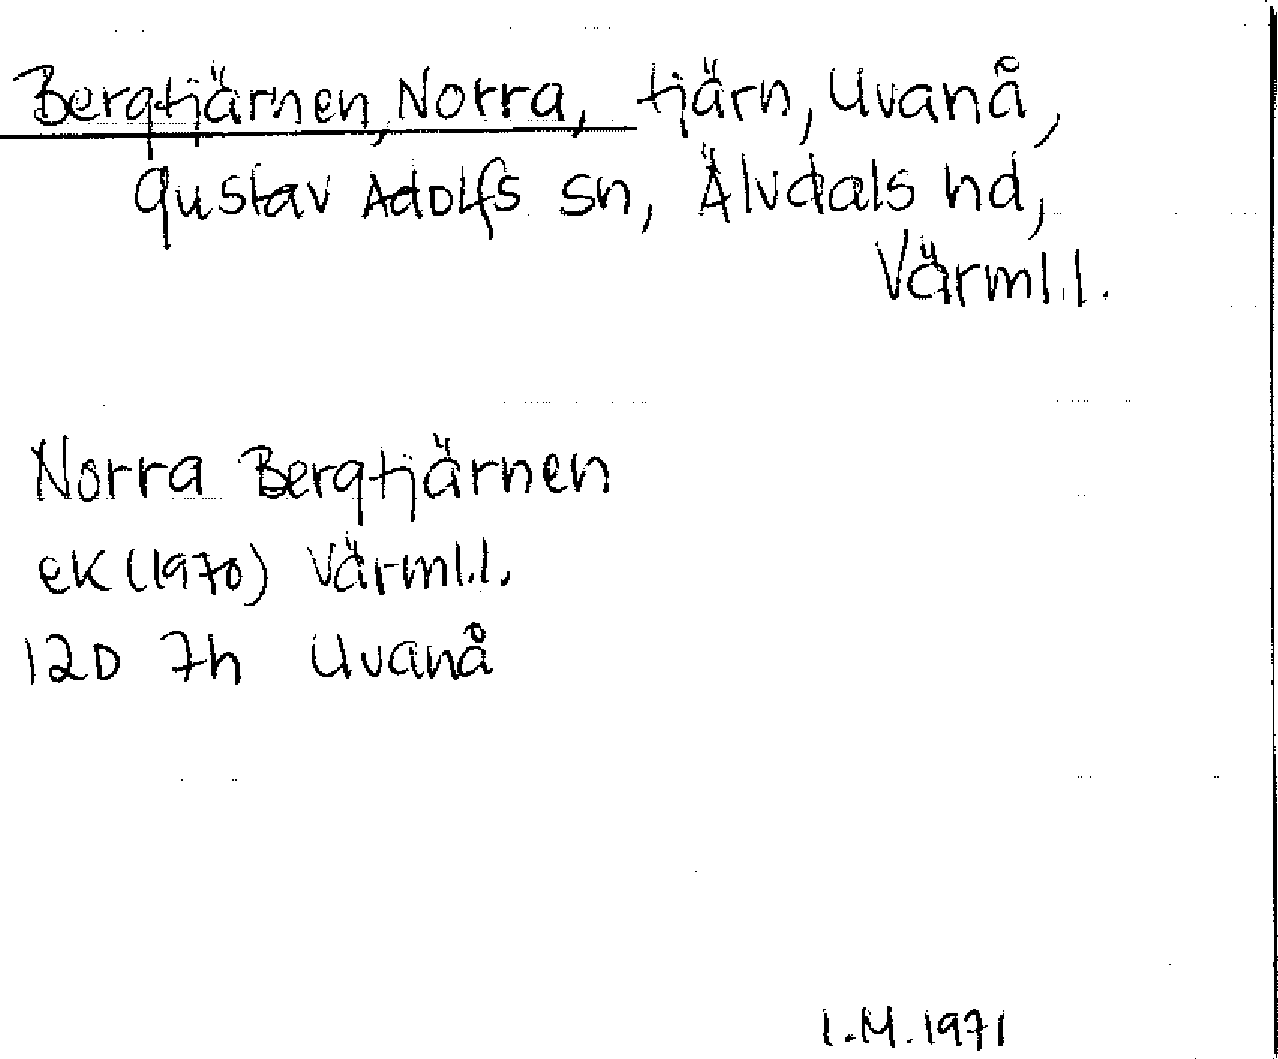 Bergtjärnen, Norra, tjärn, Uvanå,
Gustav Adolfs sn, Älvdals hd,
Värml.l.
Norra Bergtjärnen
ek (1970) Värml.l.
12D 7h Uvanå
I.M. 1971